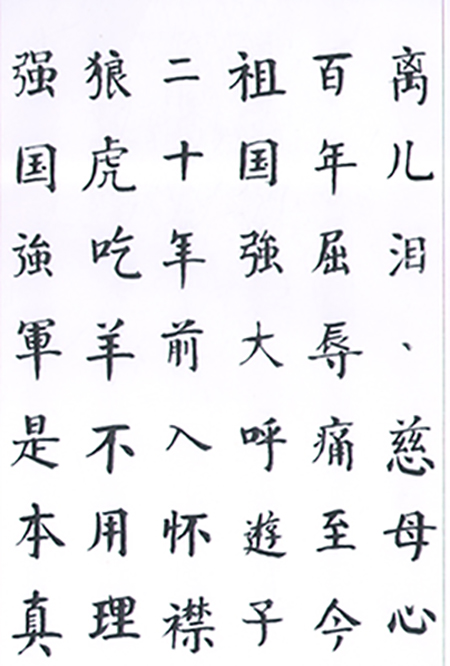 离儿泪、慈母心
百年屈辱痛至今
祖国強大呼遊子
二十年前入怀襟
狼虎吃羊不用理
强国強軍是本真